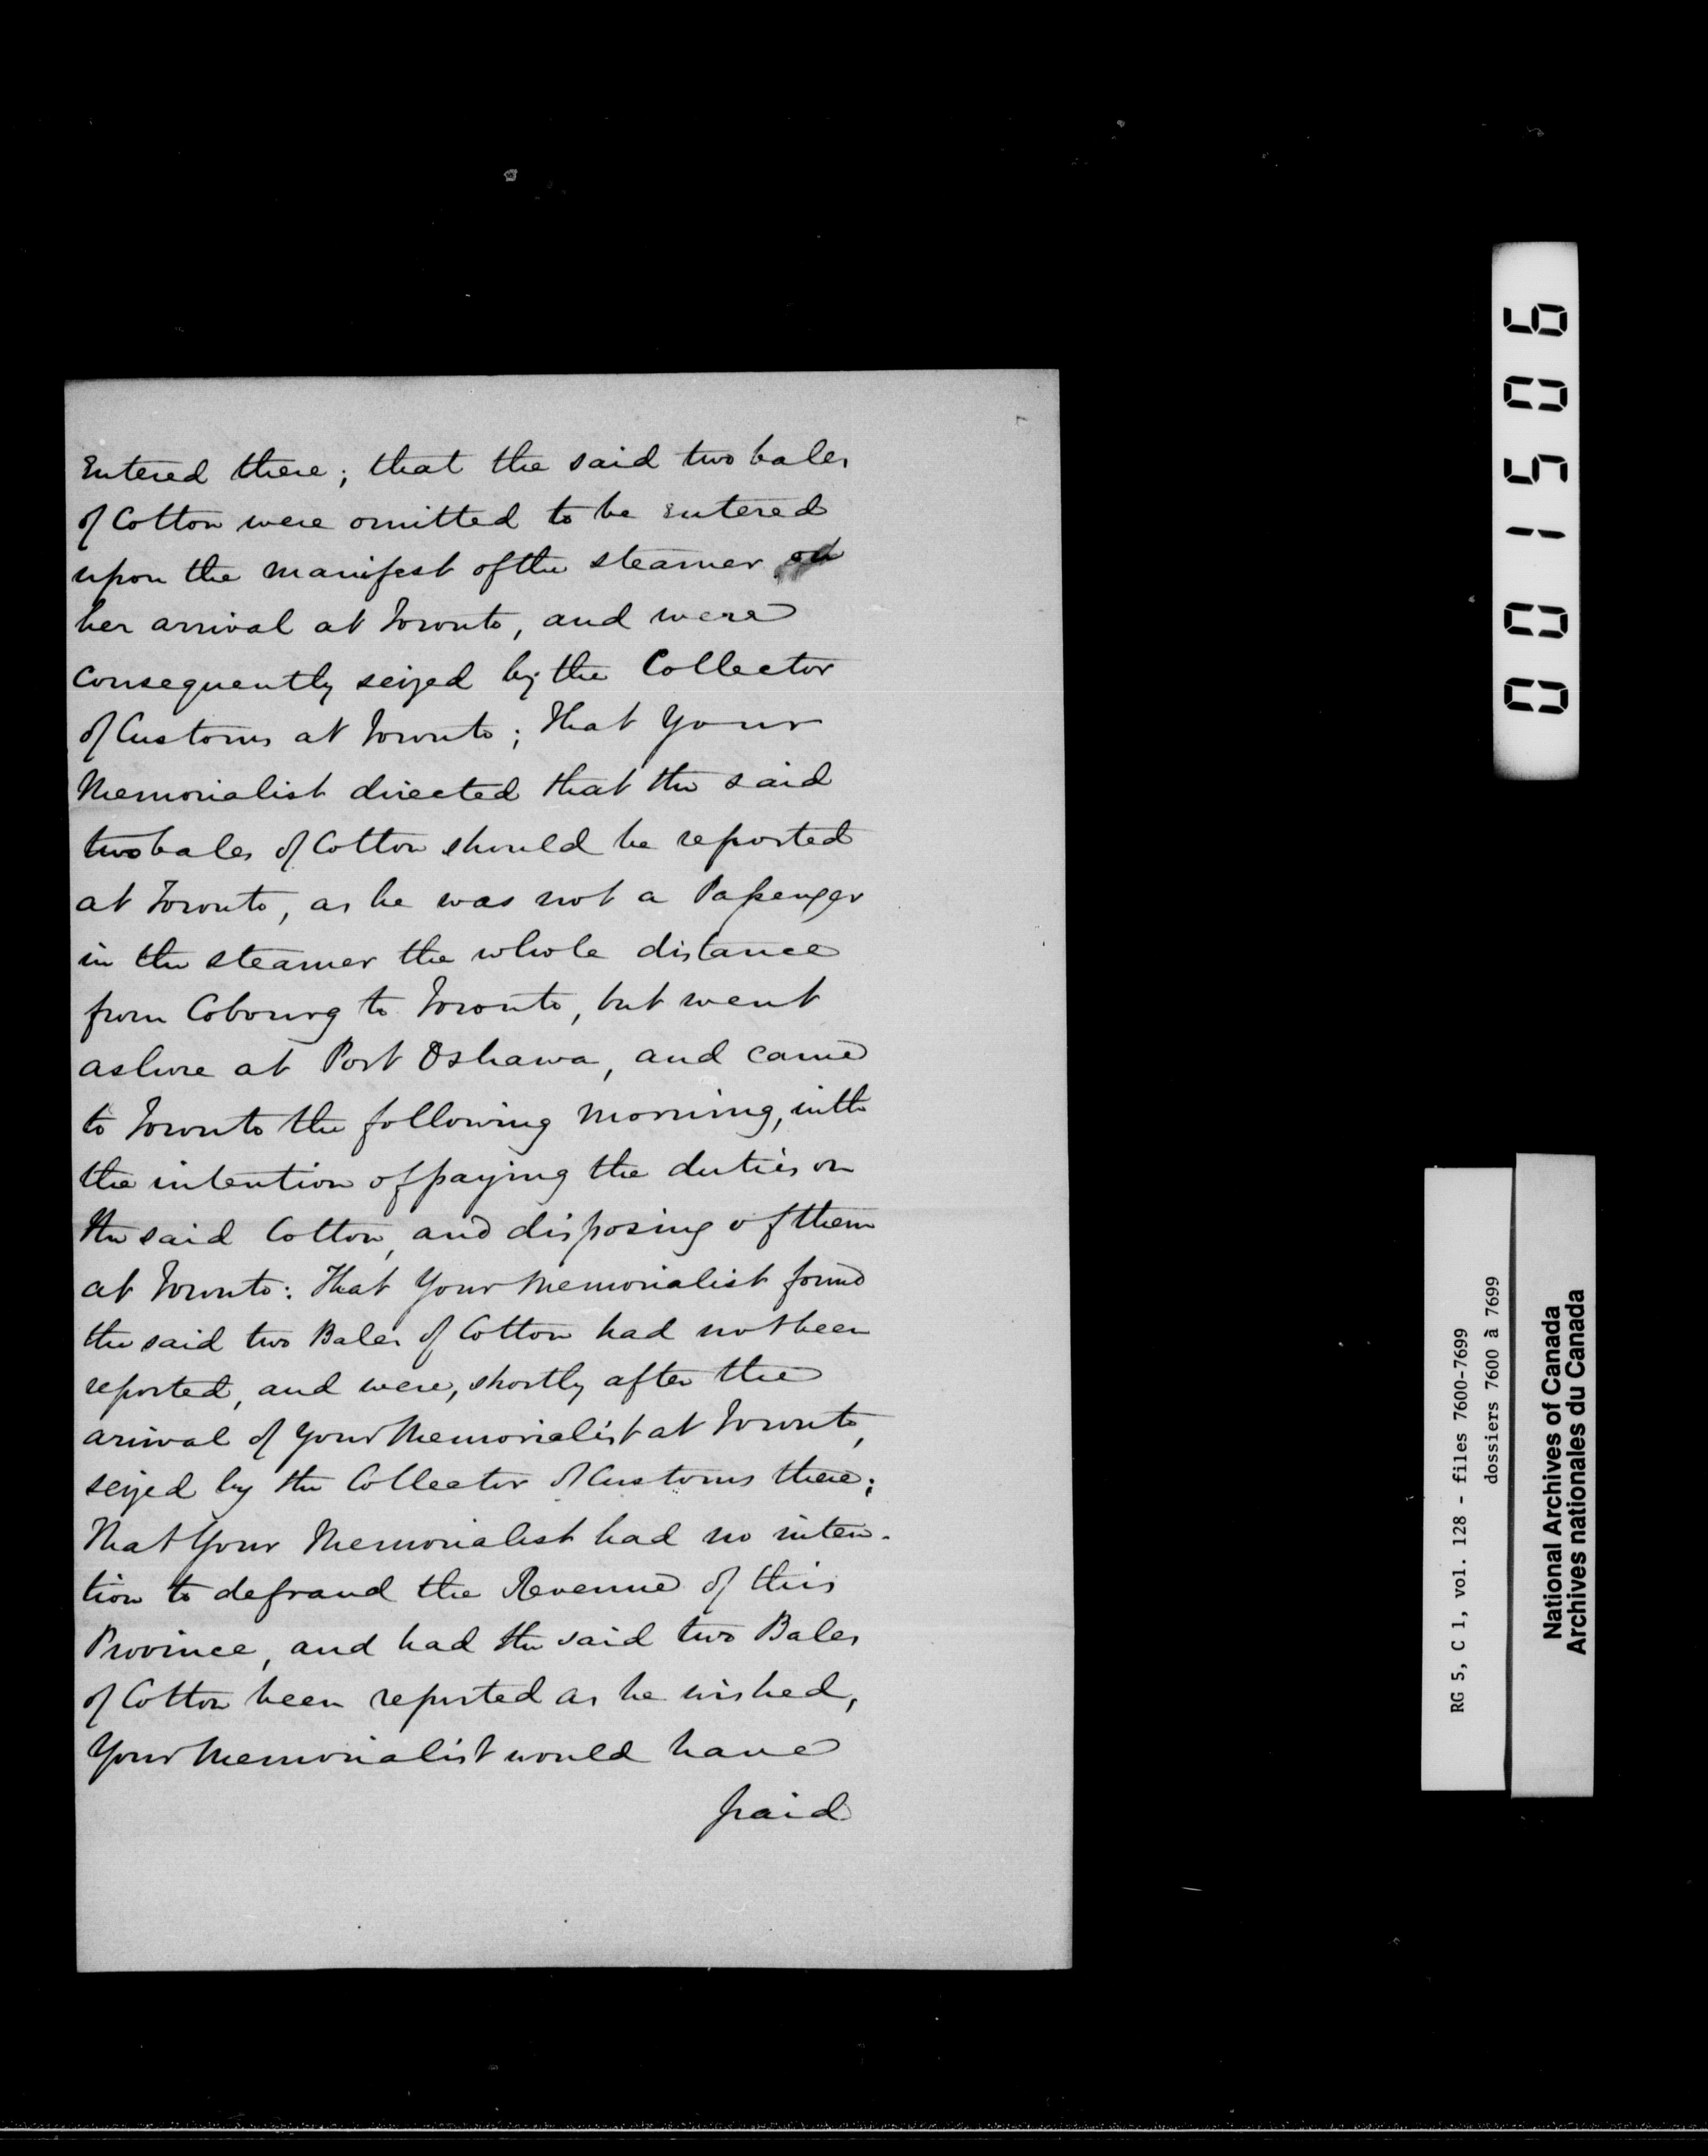 Entered there; that the said two bales
of Cotton were omitted to be entered
upon the manifest of the steamer on
her arrival at Toronto, and were
consequently seized by the Collector
of Customs at Toronto; That Your
Memorialist directed that the said
two bales of Cotton should be reported
at Toronto, as he was not a Passenger
in the steamer the whole distance
from Cobourg to Toronto, but went
ashore at Port Oshawa, and came
to Toronto the following morning, with
the intention of paying the duties on
the said Cotton, and disposing of them
at Toronto: That Your Memorialist found
the said two Bales of Cotton had not been
reported, and were, shortly after the
arrival of Your Memorialist at Toronto,
seized by the Collector of Customs there;
That Your Memorialist had no inten-
tion to defraud the Revenue of this
Province, and had the said two Bales
of Cotton been reported as he wished,
Your Memorialist would have
paid
001506
RG 5, C 1, vol. 128 - files 7600-7699
dossiers 7600 à 7699
National Archives of Canada
Archives nationales du Canada